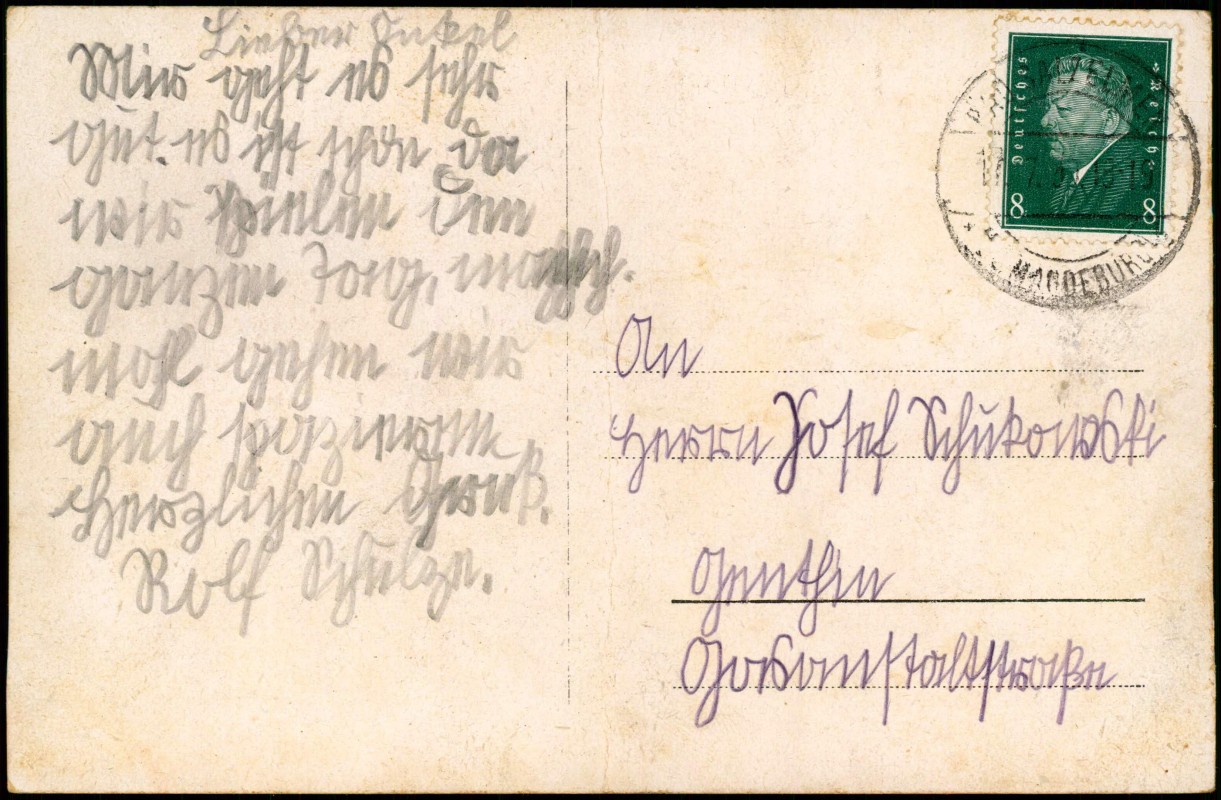 Lieber Onkel
Mir geht es sehr
gut. es ist schön da
wir spielen den
ganzen Tag,
mahl gehen wir
auch spazieren
Herzlichen Gruß.
Rolf Schulze.
Deutsches Reich
8 8
MAGDEBURG
An
Herrn Josef Schukowski
Genthin
Gasanstaltstraße